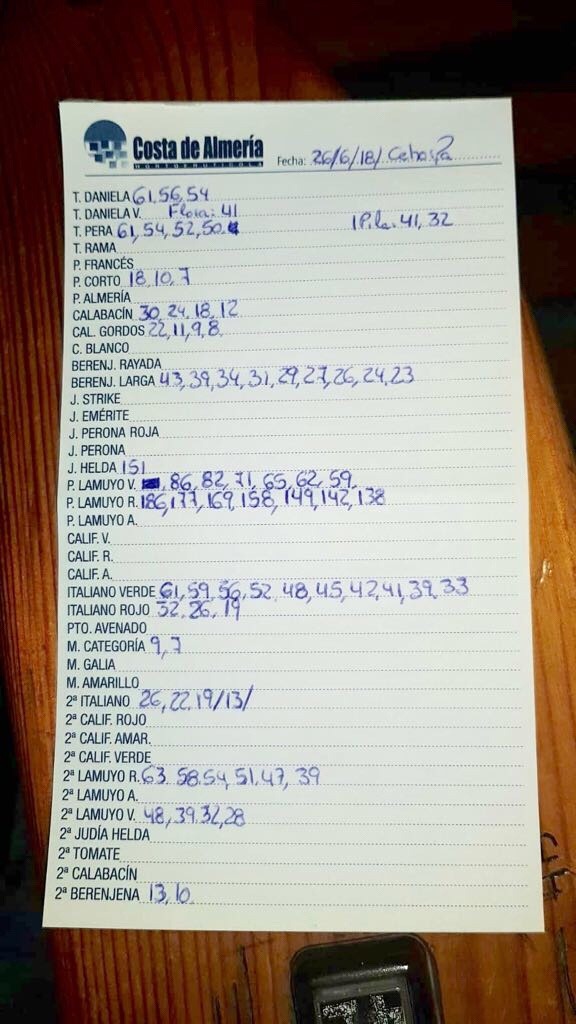 Costa de Almería
HORTOFRUTÍCOLA
Fecha: 26/6/18/
T. DANIELA 61, 56, 54
T. DANIELA V. Flora: 41
T. PERA 61, 54, 52, 50 1 Pila: 41, 32
T. RAMA
P. FRANCÉS
P. CORTO 18, 10, 7
P. ALMERÍA
CALABACÍN 30, 24, 18, 12
CAL. GORDOS 22, 11, 9, 8
C. BLANCO
BERENJ. RAYADA
BERENJ. LARGA 43, 39, 34, 31, 29, 27, 26, 24, 23
J. STRIKE
J. EMÉRITE
J. PERONA ROJA
J. PERONA
J. HELDA 151
P. LAMUYO V. 86, 82, 71, 65, 62, 59
P. LAMUYO R. 186, 177, 169, 158, 149, 142, 138
P. LAMUYO A.
CALIF. V.
CALIF. R.
CALIF. A.
ITALIANO VERDE 61, 59, 56, 52, 48, 45, 42, 41, 39, 33
ITALIANO ROJO 32, 26, 19
PTO. AVENADO
M. CATEGORÍA 9, 7
M. GALIA
M. AMARILLO
2ª ITALIANO 26, 22, 19/13/
2ª CALIF. ROJO
2ª CALIF. AMAR.
2ª CALIF. VERDE
2ª LAMUYO R. 63, 58, 54, 51, 47, 39
2ª LAMUYO A.
2ª LAMUYO V. 48, 39, 32, 28
2ª JUDÍA HELDA
2ª TOMATE
2ª CALABACÍN
2ª BERENJENA 13, 10